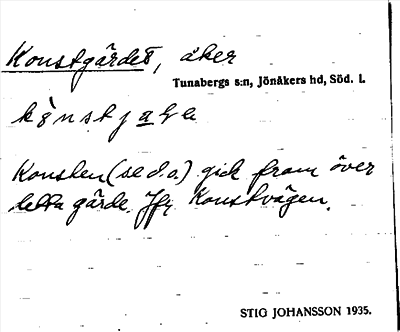 Konstgärdet, åker
Tunabergs s:n, Jönåkers hd, Söd. l.
Konsten (se d. o.) gick fram över
detta gärde. Jfr Konstvägen.
STIG JOHANSSON 1935.